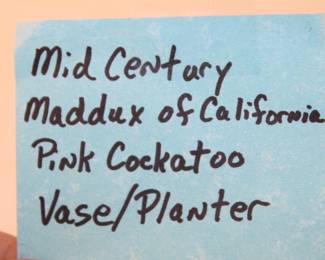 Mid Century
Maddux of California
Pink Cockatoo
Vase/Planter